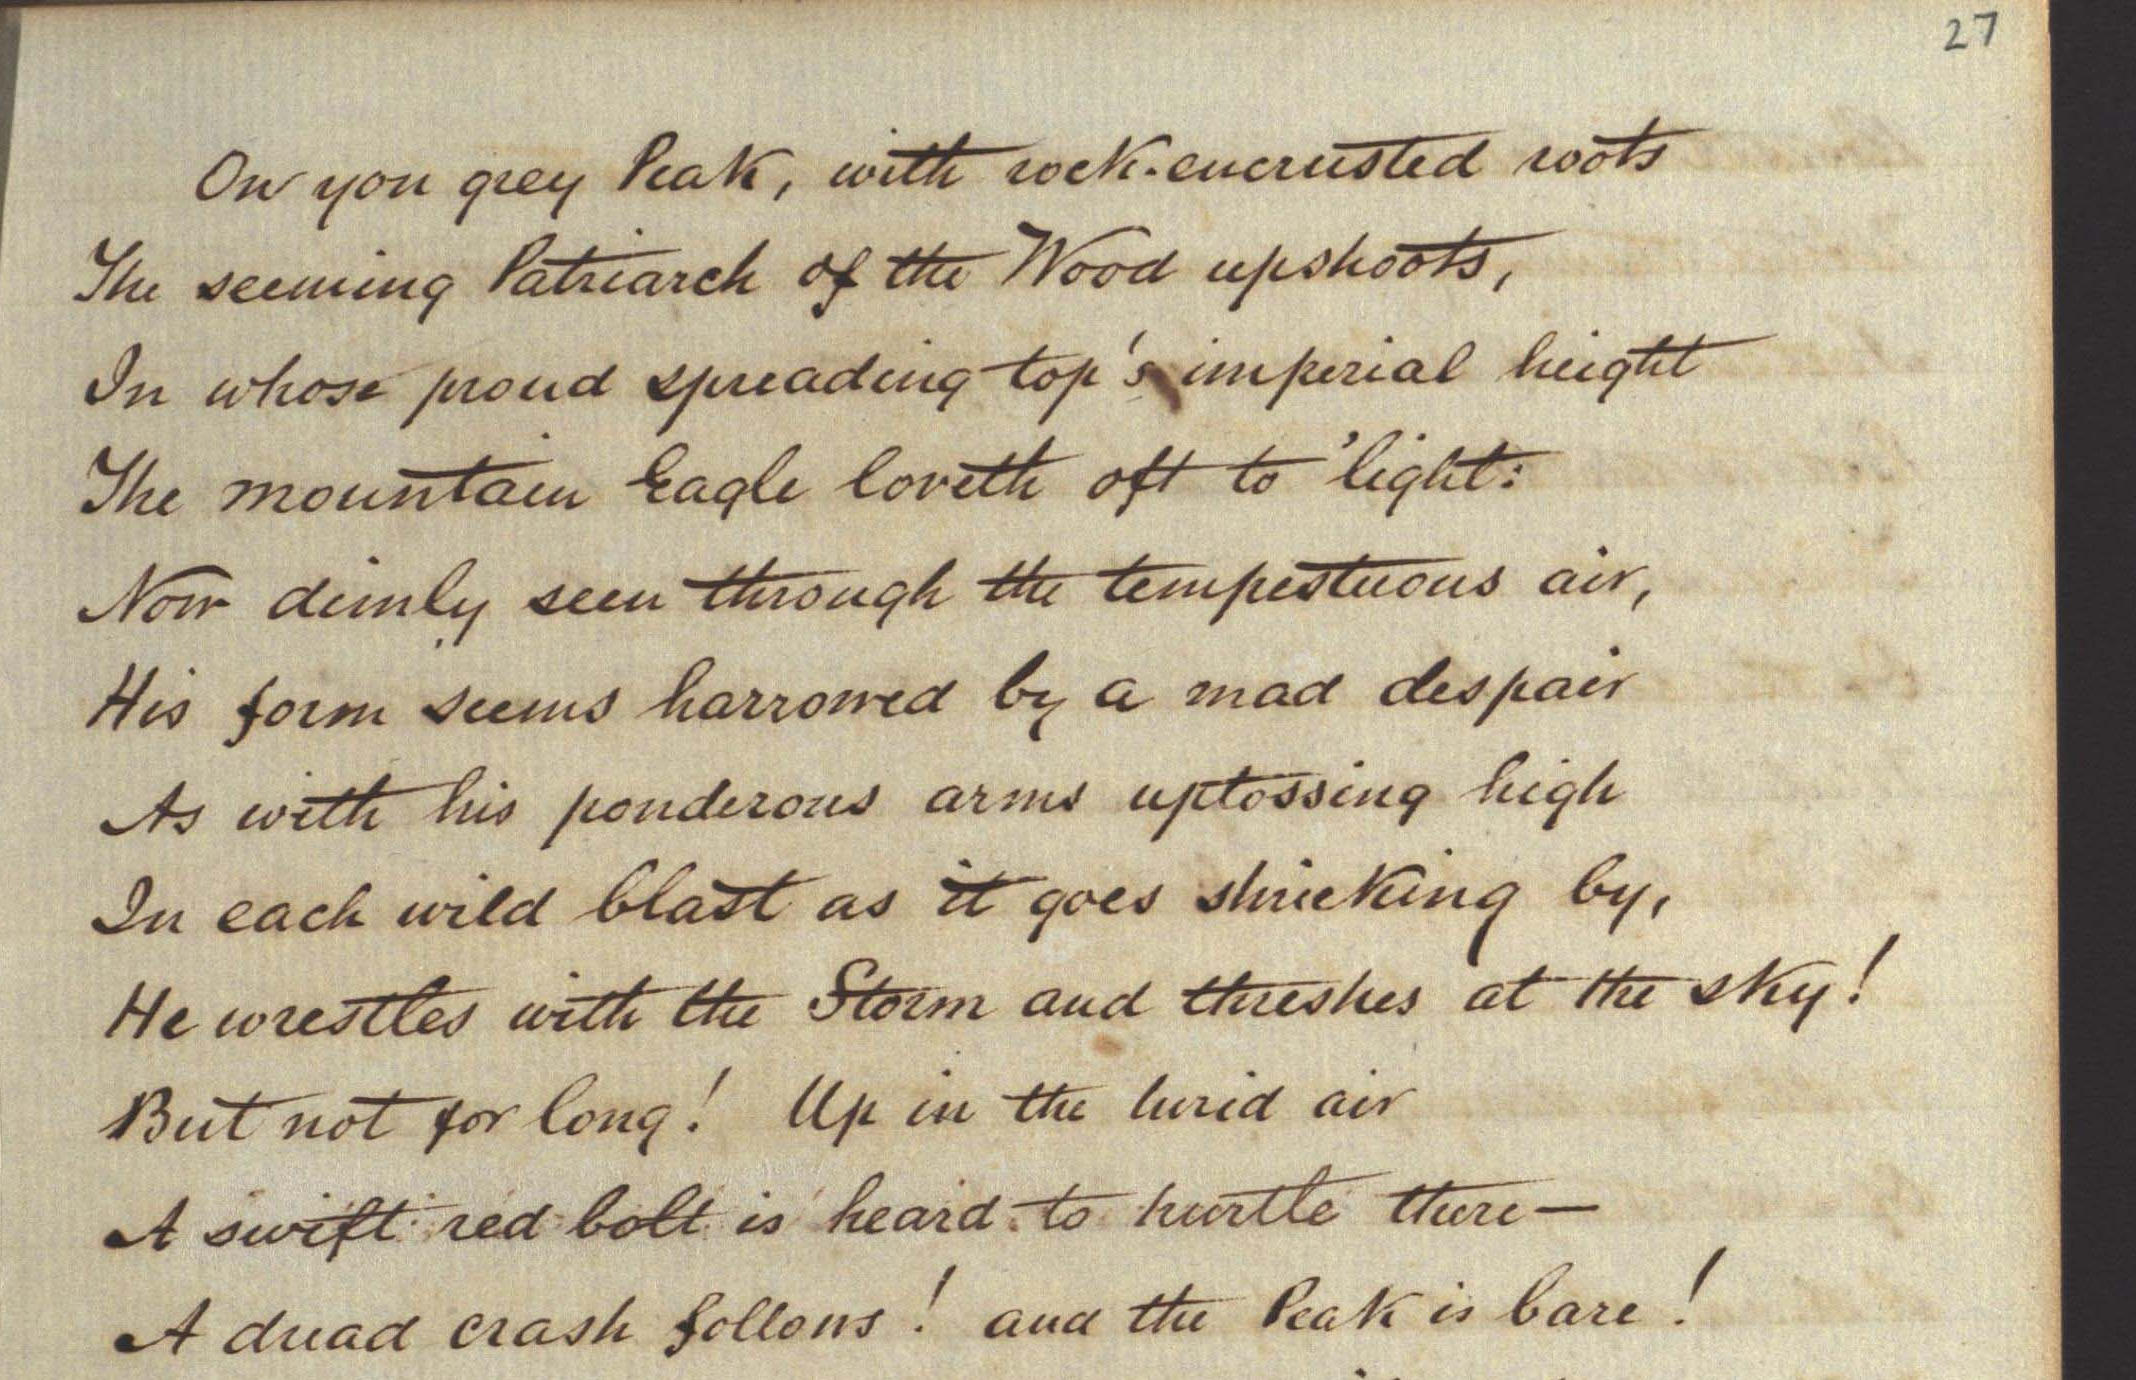 27
On yon grey Peak, with rock-encrusted roots
The seeming Patriarch of the Wood upshoots,
In whose proud spreading top's imperial height
The mountain Eagle loveth oft to 'light:
Now dimly seen through the tempestuous air,
His form seems harrowed by a mad despair
As with his ponderous arms uptossing high
In each wild blast as it goes shrieking by,
He wrestles with the Storm and threshes at the sky!
But not for long! Up in the lurid air
A swift red bolt is heard to hurtle there—
A dread crash follows! and the Peak is bare!